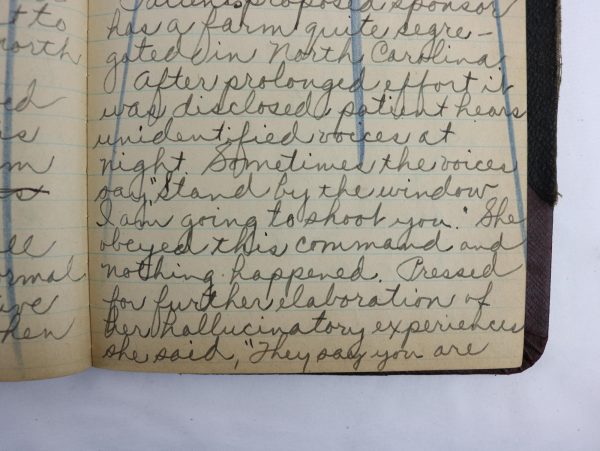 t to
north
ed
is
m
s
ll
ormal
ive
hen
Patient's proposed sponsor
has a farm quite segre-
gated in North Carolina.
After prolonged effort it
was disclosed patient hears
unidentified voices at
night. Sometimes the voices
say, "Stand by the window
I am going to shoot you." She
obeyed this command and
nothing happened. Pressed
for further elaboration of
her hallucinatory experiences
she said, "They say you are